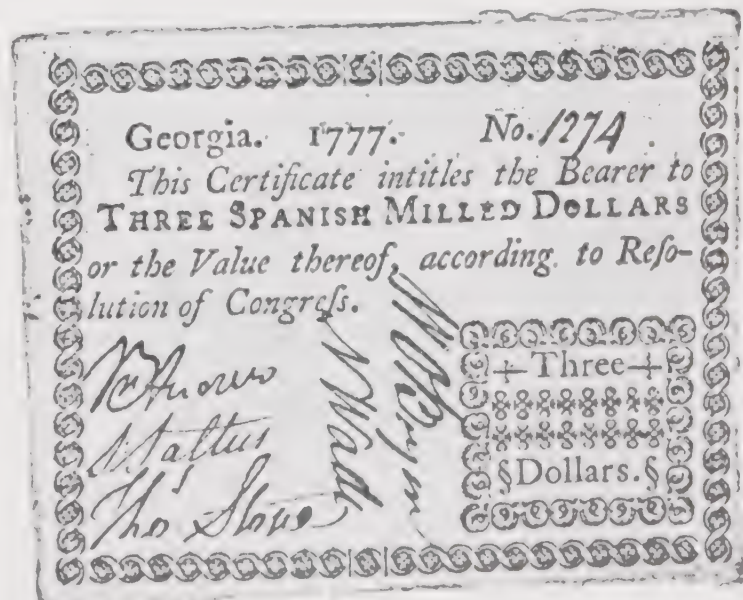 Georgia. 1777. No. 1274
This Certificate intitles the Bearer to
THREE SPANISH MILLED DOLLARS
or the Value thereof, according to Reſo-
lution of Congreſs.
Wm Andrew
Thos Stone
N Wade
+Three+
§Dollars.§